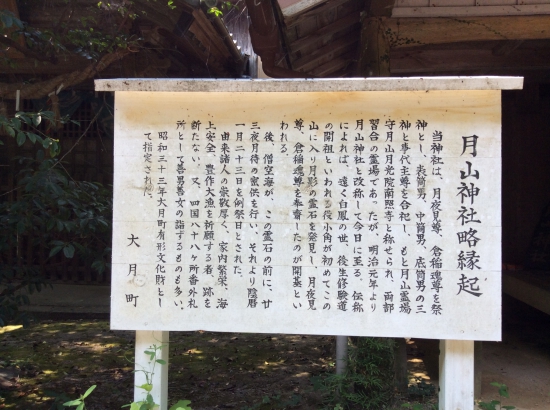 月山神社略縁起
当神社は、月夜見尊、倉稲魂尊を祭
神とし、表筒男、中筒男、底筒男の三
神と事代主尊を合祀し、もと月山霊場
守月山月光院南照寺と称せられ、両部
習合の霊場であったが、明治元年より
月山神社と改称して今日に至る。伝称
によれば、遠く白鳳の世、後生修験道
の開祖といわれる役小角が初めてこの
山に入り月影の霊石を発見し、月夜見
尊、倉稲魂尊を奉斎したのが開基とい
われる。
後、僧空海が、この霊石の前に、廿
三夜月待の密法を行い、それより陰暦
一月二十三日を例祭日とされた。
由来諸人の崇敬厚く、家内繁栄、海
上安全、豊作大漁を祈願する者、跡を
断たない。又、四国八十八ヶ所番外札
所として善男善女の詣するものも多い。
昭和三十三年大月町有形文化財とし
て指定された。
大月町